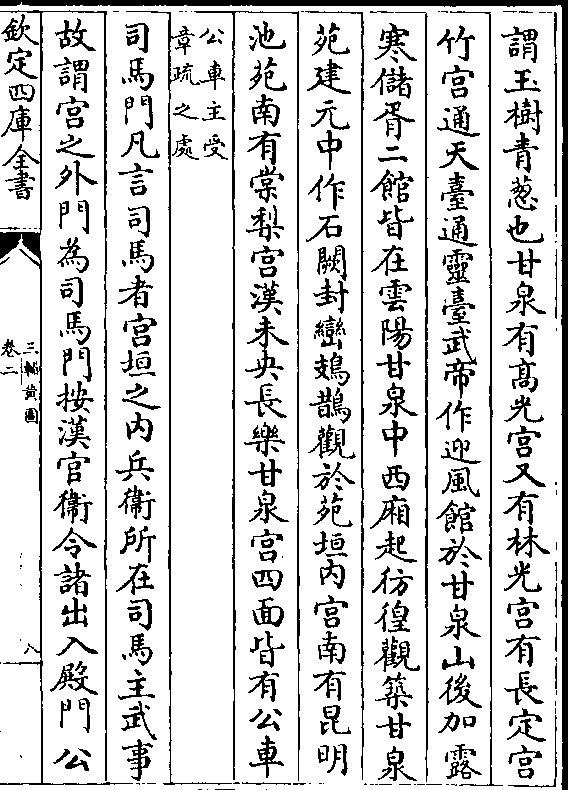 謂玉樹青葱也甘泉有髙光宫又有林光宫有長定宫
竹宫通天臺通靈臺武帝作迎風館於甘泉山後加露
寒儲胥二館皆在雲陽甘泉中西廂起彷徨觀築甘泉
苑建元中作石闕封巒鳷鵲觀於苑垣内宫南有昆明
池苑南有棠梨宫漢未央長樂甘泉宫四面皆有公車
公車主受
章疏之處
司馬門凡言司馬者宫垣之内兵衞所在司馬主武事
故謂宫之外門為司馬門按漢宫衞令諸出入殿門公
欽定四庫全書
三輔黄圖
卷二
八